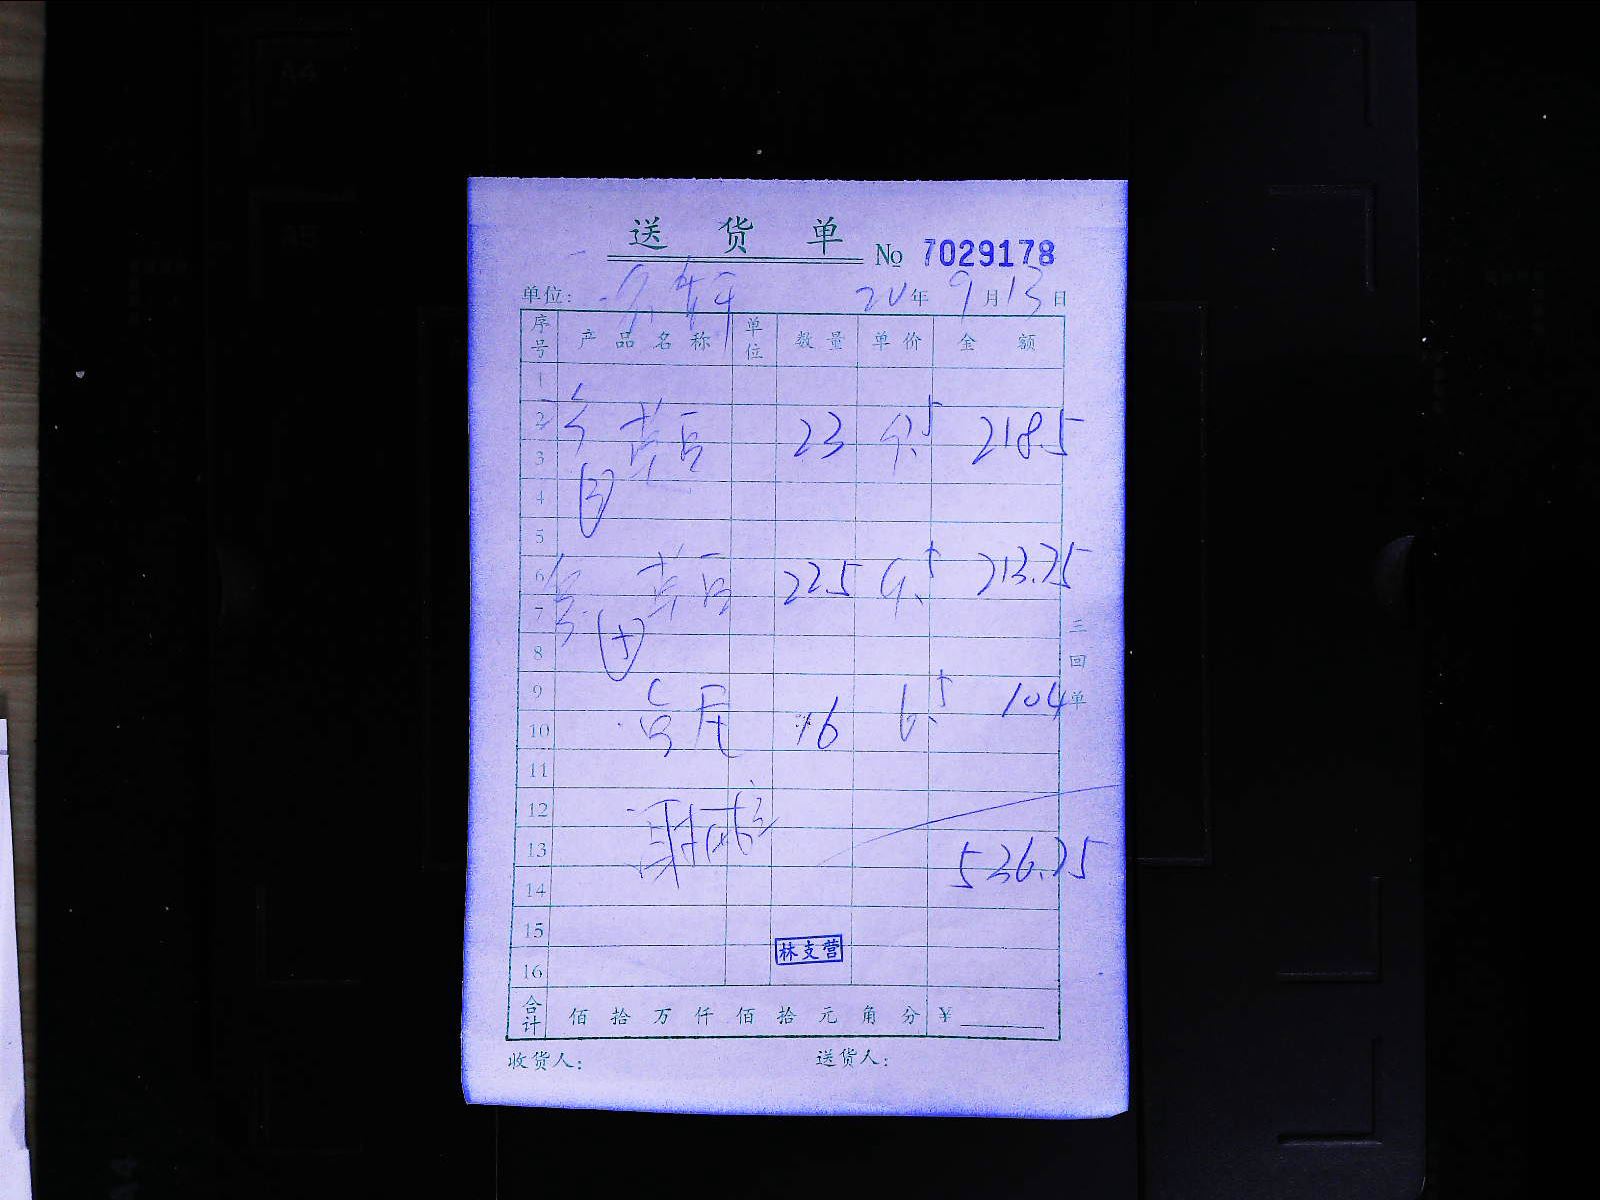 送货单 No 7029178
单位: 20年9月13日
序号 产品名称 单位 数量 单价 金额
1
2 黄豆 23 9.5 218.5
3
4
5
6 黄豆 22.5 9.5 213.75
7
8
9
10 16 6.5 104
11
12
13 536.25
14
15
16
林支营
合计 佰拾万仟佰拾元角分 ¥
收货人: 送货人:
三回单